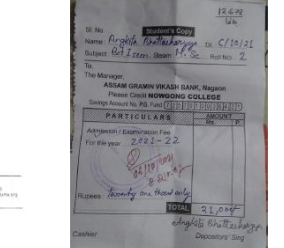 Sl. No.
Student's Copy
Name: Ankita Bhattacharyya Dt. 6/10/21
Subject M.Sc. Roll No. 2
To,
The Manager,
ASSAM GRAMIN VIKASH BANK, Nagaon
Please Credit NOWGONG COLLEGE
Savings Account No. P.G. Fund
PARTICULARS AMOUNT
Rs. P.
Admission / Examination Fee
For the year 2021-22
Rupees Twenty one thousand only
TOTAL 21,000
Ankita Bhattacharyya
Cashier Depositors' Sing